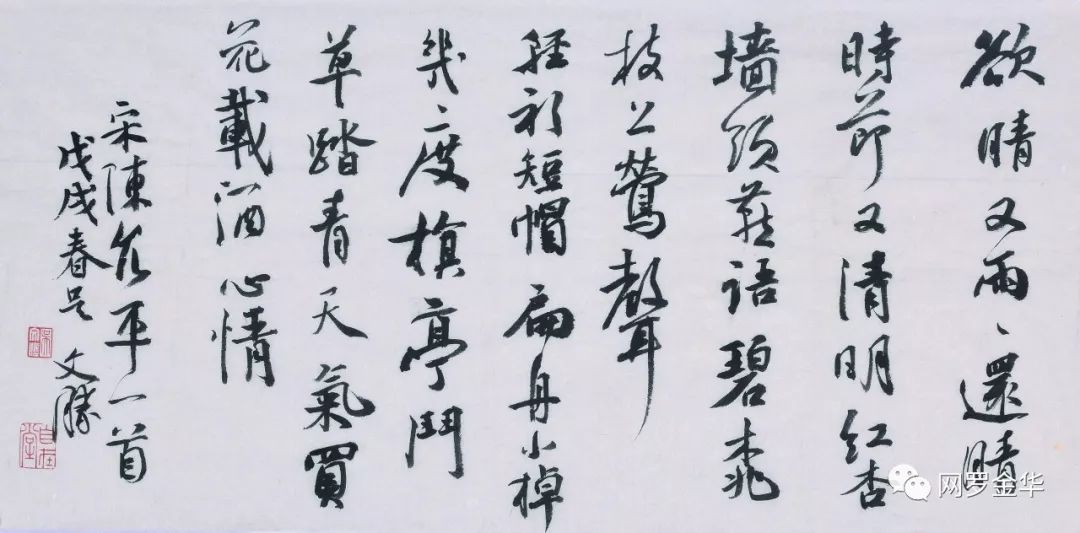 欲晴又雨〻還晴
時節又清明紅杏
墻頭燕語碧桃
枝上鶯聲
輕衫短帽扁舟小棹
幾〻度旗亭鬥
草踏青天氣買
花載酒心情
宋陳允平一首
戊戌春吳文勝
自在堂
网罗金华